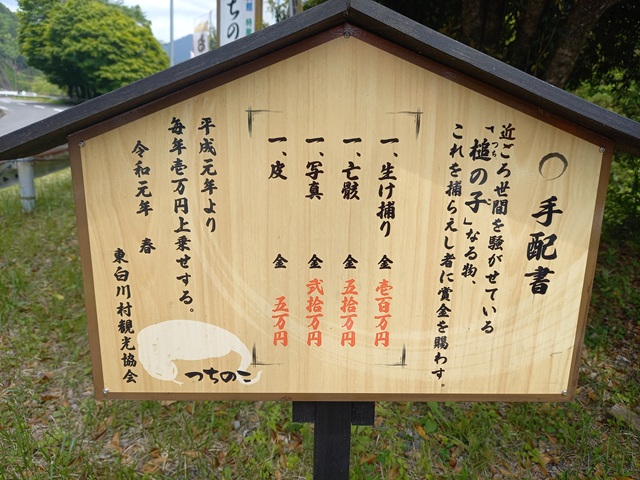 〇手配書
近ごろ世間を騒がせている
「槌の子」なる物、
つち
これを捕らえし者に賞金を賜わす。
一、生け捕り 金 壱百万円
一、亡骸 金 五拾万円
一、写真 金 弐拾万円
一、皮 金 五万円
平成元年より
毎年壱万円上乗せする。
令和元年 春
東白川村観光協会
つちのこ
ちの